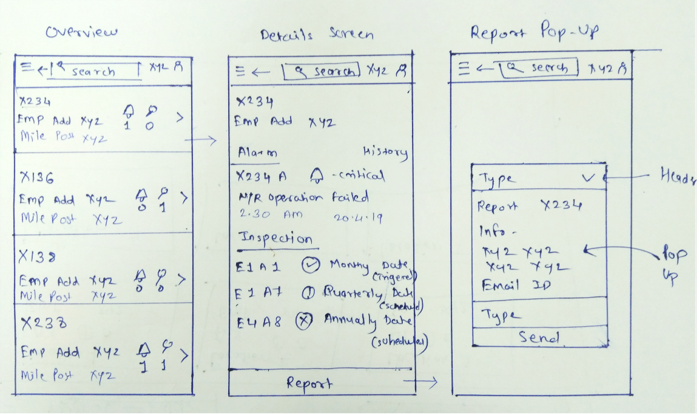 Overview
search xyz
X234
Emp Add xyz 1 0
Mile Post xyz
X136
Emp Add xyz 0 1
Mile Post xyz
X138
Emp Add xyz 0 0
Mile Post xyz
X238
Emp Add xyz 1 1
Mile Post xyz
Details Screen
search xyz
X234
Emp Add xyz
Alarm History
X234 A - critical
N/R operation Failed
2.30 AM 20.4.19
Inspection
E1 A1 Monthy Date
E1 A7 Quarterly Date
E4 A8 Annually Date
Report
Report Pop-Up
search xyz
Type
Report X234
Info -
xyz xyz
xyz xyz
Email ID
Type
Send
Header
Pop
up